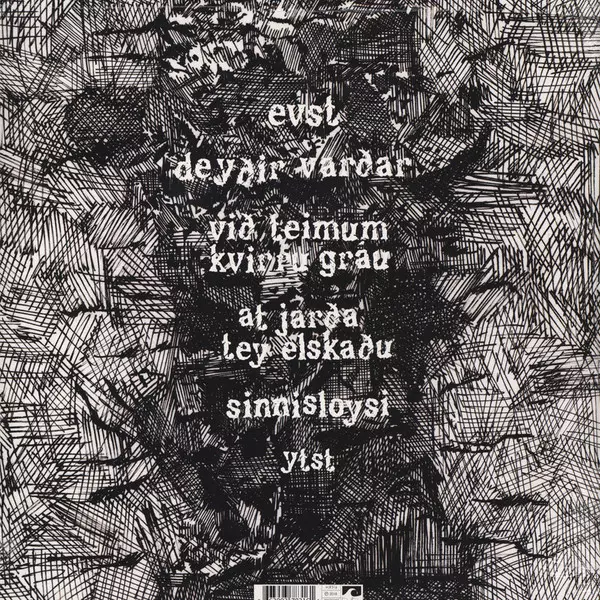 evst
deyðir varðar
við teimum
kvirru gráu
at jarða
tey elskaðu
sinnisloysi
ytst